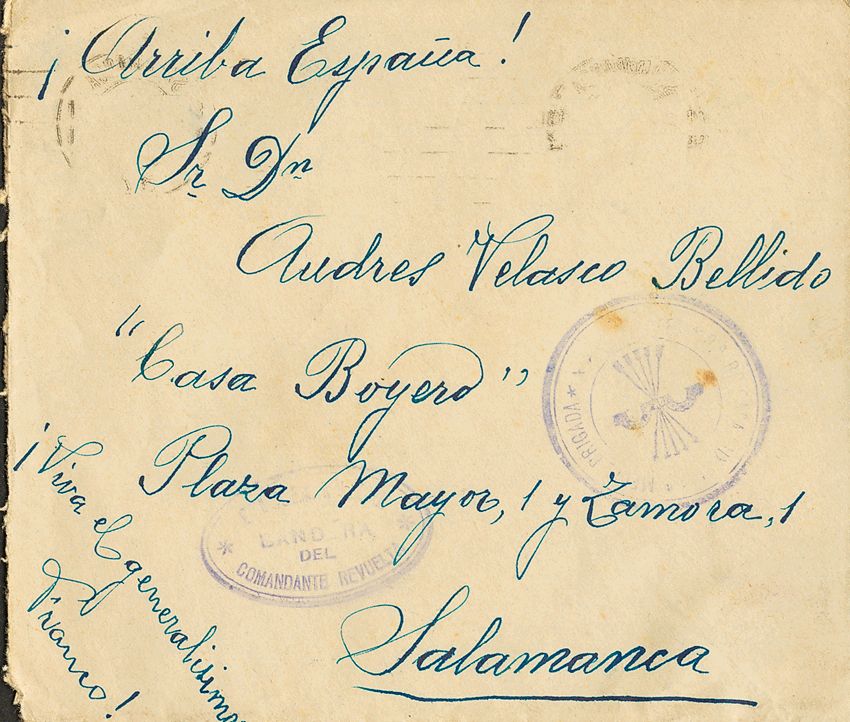 ¡Arriba España!
Sr. Dn
Andres Velasco Bellido
"Casa Boyero"
Plaza Mayor, 1 y Zamora, 1
Salamanca
¡Viva el generalisimo
Franco!
BRIGADA
BANDERA
DEL
COMANDANTE REVUELTA